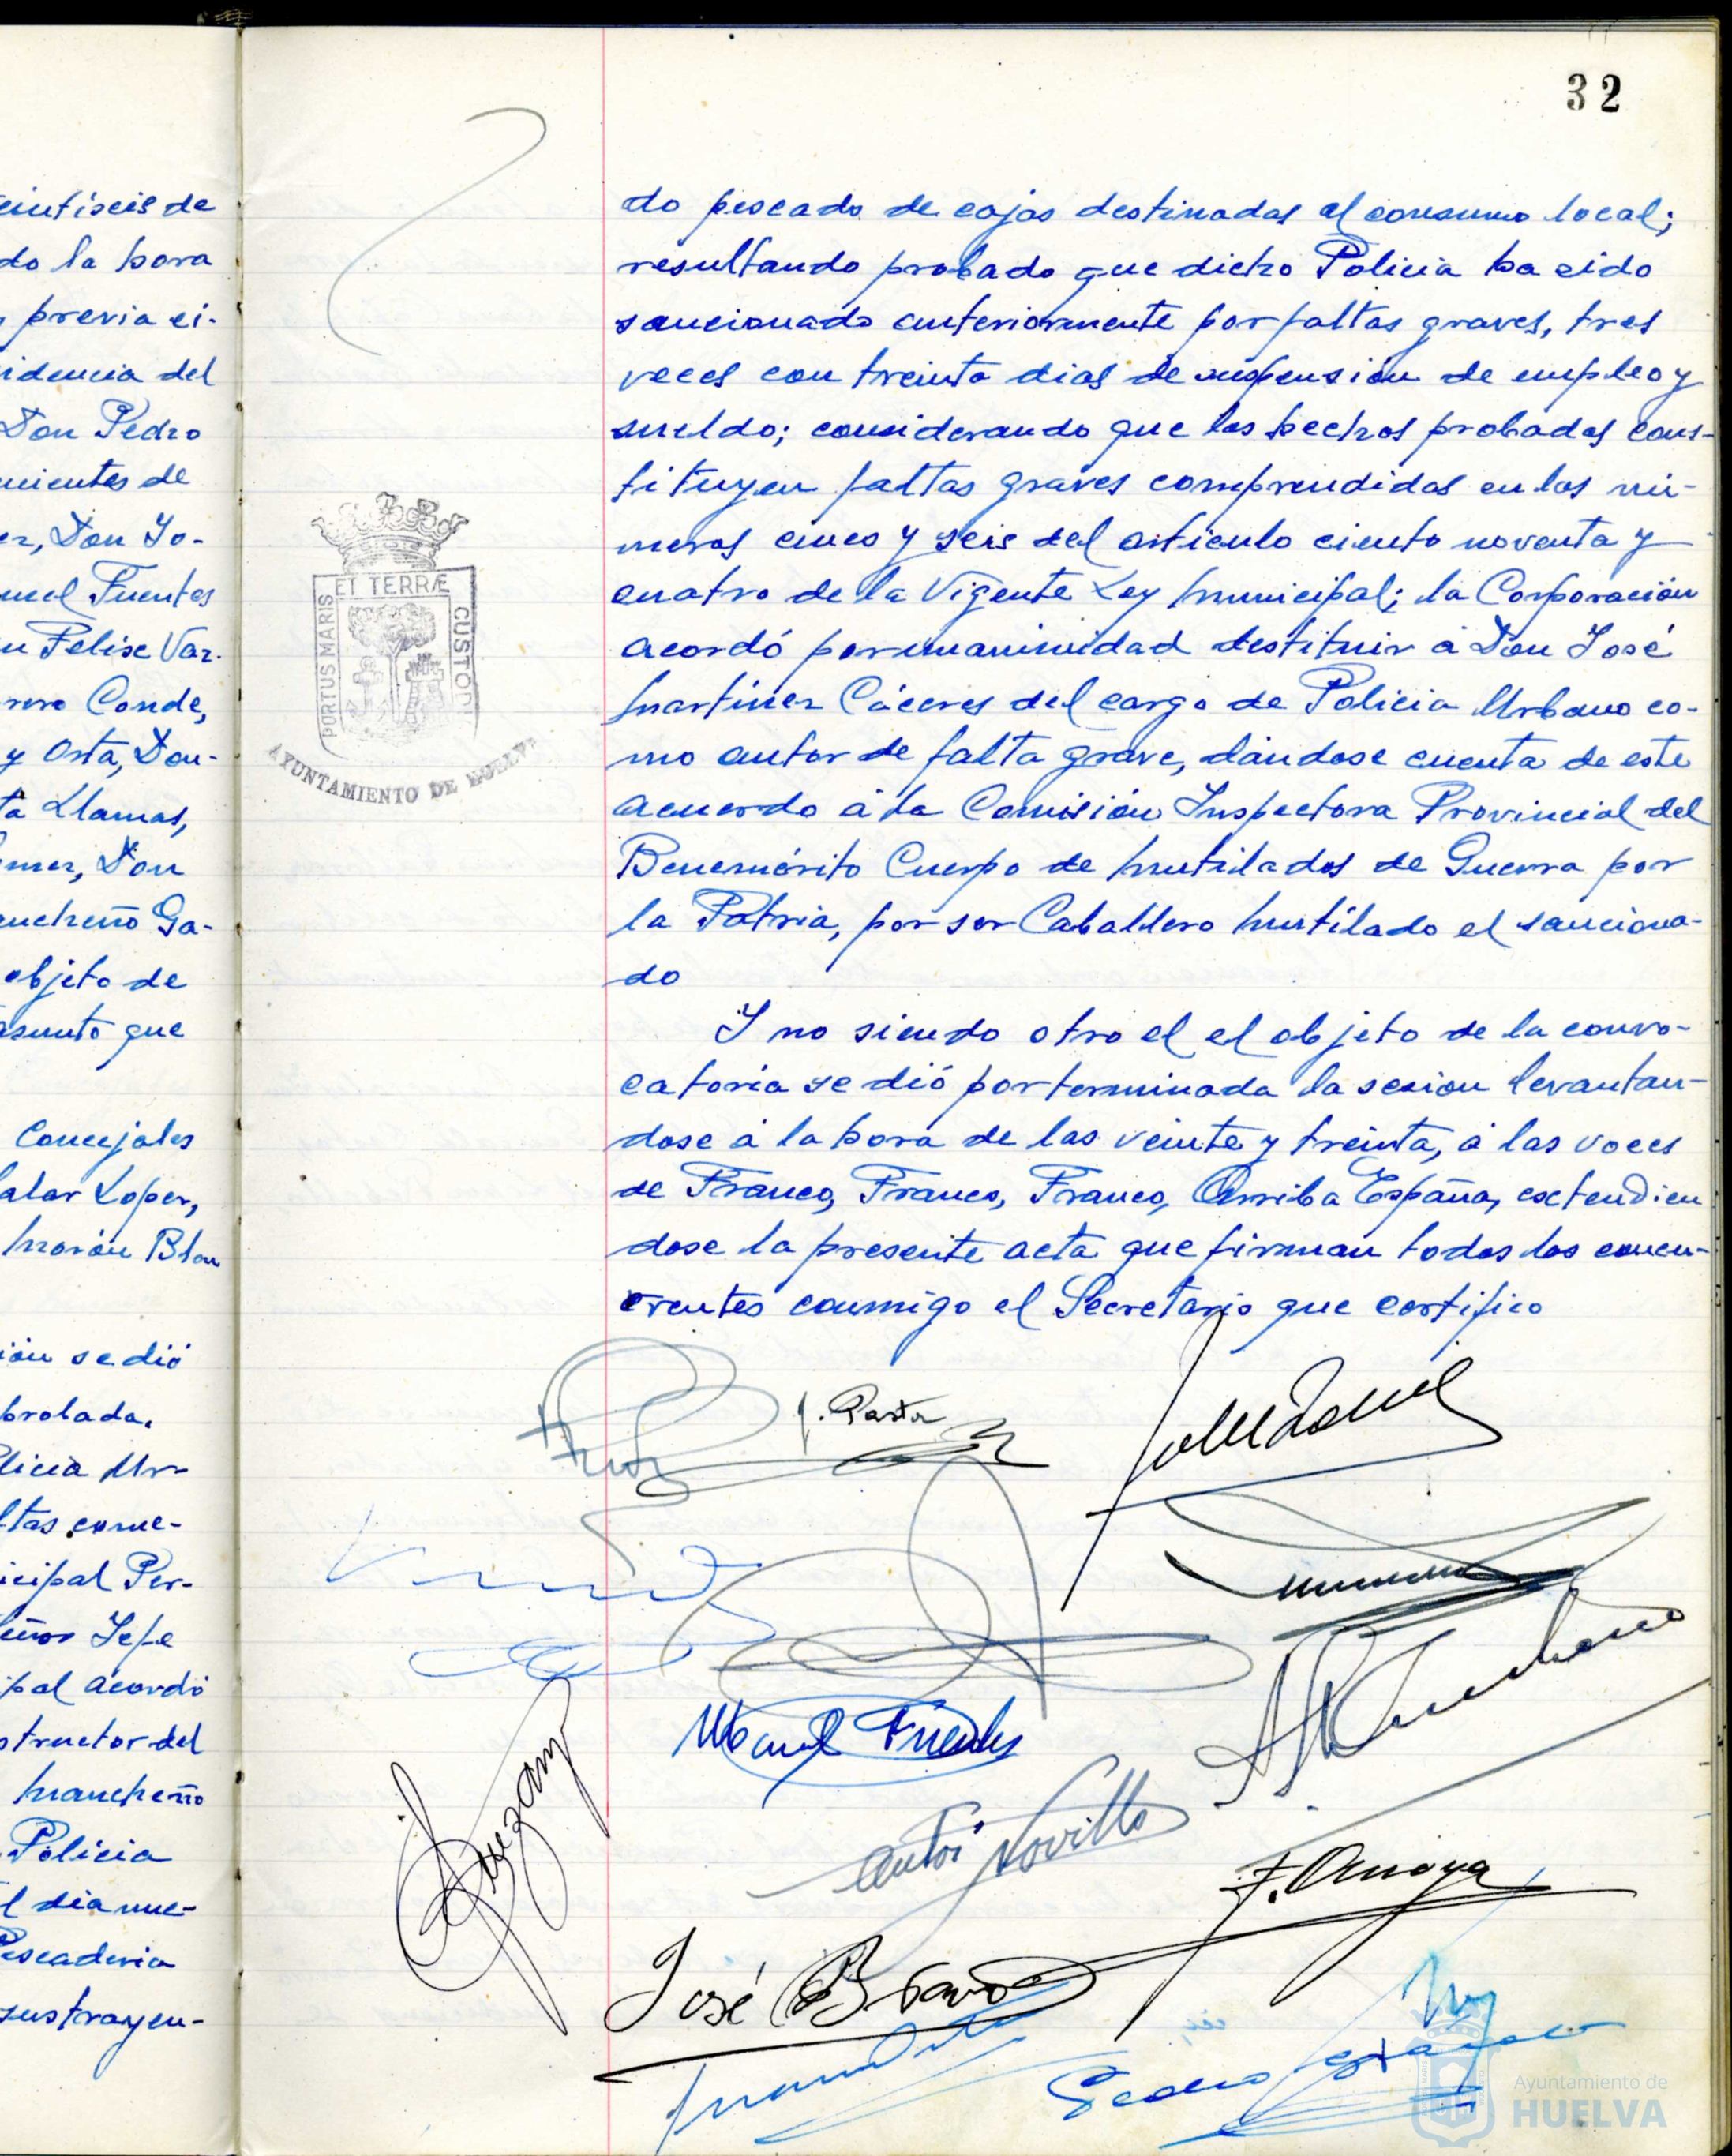 eintiseis de
do la hora
previa ci-
idencia del
Don Pedro
nientes de
Don Jo-
uel Fuentes
Felise Vaz.
rero Conde,
y Osta, Don
ta Llamas,
mez, Don
ancheño Ga-
objeto de
asunto que
Concejales
alar Lopez,
Morón Blan
ión se dió
probada.
licia Ur-
ltas come-
icipal Per-
eñor Jefe
ipal acordó
structor del
Mancheño
Policia
l dia nue-
Pescaderia
sustrayen-
32
do pescado de cajas destinadas al consumo local;
resultando probado que dicho Policia ha sido
sancionado anteriormente por faltas graves, tres
veces con treinta dias de suspensión de empleo y
sueldo; considerando que los hechos probados cons-
tituyen faltas graves comprendidas en los nú-
meros cinco y seis del articulo ciento noventa y
cuatro de la Vigente Ley Municipal; la Corporación
acordó por unanimidad destituir á Don José
Martinez Cáceres del cargo de Policia Urbano co-
mo autor de falta grave, dándose cuenta de este
acuerdo á la Comisión Inspectora Provincial del
Benemérito Cuerpo de Mutilados de Guerra por
la Patria, por ser Caballero Mutilado el sanciona-
do
Y no siendo otro el el objeto de la convo-
catoria se dió por terminada la sesion levantan-
dose á la hora de las veinte y treinta, á las voces
de Franco, Franco, Franco, Arriba España, extendien
dose la presente acta que firman todos los concu-
rrentes conmigo el Secretario que certifico
PORTUS MARIS
ET TERRÆ
CUSTODI
AYUNTAMIENTO DE HUELVA
J. Pastor
Manuel Fuentes
Antoi Novillo
F. Amaya
José Bravo
Pedro
Ayuntamiento de
HUELVA